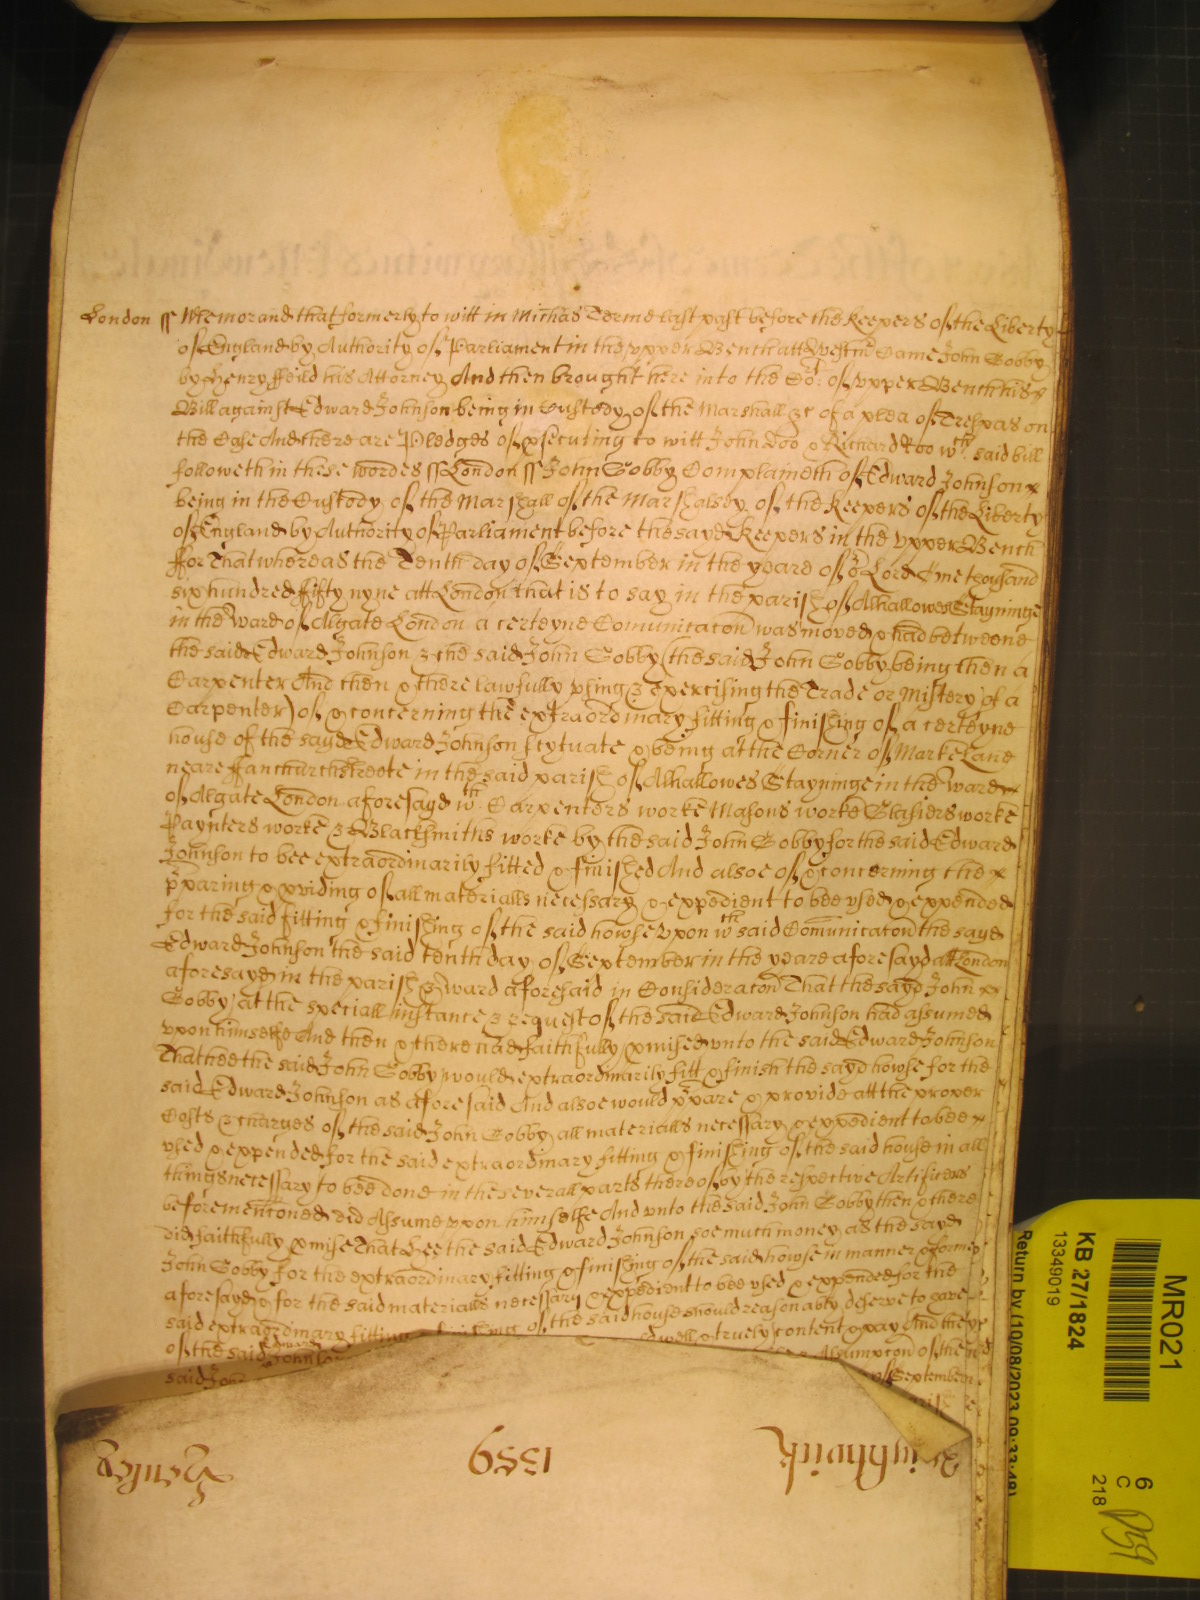 London ss Memorand that formerly to witt in Michas Terme last past before the Keepers of the Liberty
of England by Authority of Parliament in the vpper Bench att Westmr Came John Gobby
by Henry Feild his Attorney And then brought here into the Cort: of vpper Bench his
Bill against Edward Johnson being in Custody of the Marshall &c of a plea of Trespas on
the Case And there are Pledges of psecuting to witt John Doo & Richard Roo wch said bill
followeth in these wordes ss London ss John Gobby Complaineth of Edward Johnson
being in the Custody of the Marshall of the Marshalsey of the Keepers of the Liberty
of England by Authority of Parliament before the sayd Keepers in the vpper Bench
ffor That whereas the Tenth day of September in the yeare of or Lord One thousand
six hundred fifty nyne att London that is to say in the parish of Alhallowes Stayninge
in the Ward of Algate London a certeyne Comunicacon was moved & had betweene
the said Edward Johnson & the said John Gobby (the said John Gobby being then a
Carpenter And then & there lawfully vsing & exercising the Trade or Mistery of a
Carpenter) of & concerning the extraordinary fitting & finishing of a certeyne
house of the sayd Edward Johnson scytuate & being at the Corner of Marke Lane
neare ffanchurchstreete in the said parish of Alhallowes Stayninge in the Ward
of Algate London aforesayd wth Carpenters worke Masons worke Glasiers worke
Paynters worke & Blacksmiths worke by the said John Gobby for the said Edward
Johnson to bee extraordinarily fitted & finished And alsoe of & concerning the
pparing & pviding of all materialls necessary & expedient to bee vsed & expended
for the said fitting & finishing of the said howse vpon wch said Comunicacon the sayd
Edward Johnson the said tenth day of September in the yeare aforesayd att London
aforesayd in the parish & ward aforesaid in Consideracon That the sayd John
Gobby at the speciall instance & request of the said Edward Johnson had assumed
vpon himselfe And then & there had faithfully pmised vnto the said Edward Johnson
That hee the said John Gobby would extraordinarily fitt & finish the sayd howse for the
said Edward Johnson as aforesaid And alsoe would ppare & provide att the proper
Costs & charges of the said John Gobby all materialls necessary & expedient to bee
vsed & expended for the said extraordinary fitting & finishing of the said house in all
things necessary to bee done in the severall parts thereof by the respective Artificers
beforemenconed did Assume vpon himselfe And vnto the said John Gobby then & there
did faithfully pmise That hee the said Edward Johnson soe much money as the sayd
John Gobby for the extraordinary fitting & finishing of the said howse in manner & forme
aforesayd & for the said materialls necessary & expedient to bee vsed & expended for the
said extraordinary fitting & finishing of the said house should reasonably deserve to have
of the said Edward Johnson well & truely content & pay And the
said John Assumpcon of the
of September
Zenley 1559
MR021
KB 27/1824
13349019
Return by (10/08/2023 09:33:48)
6
C
218